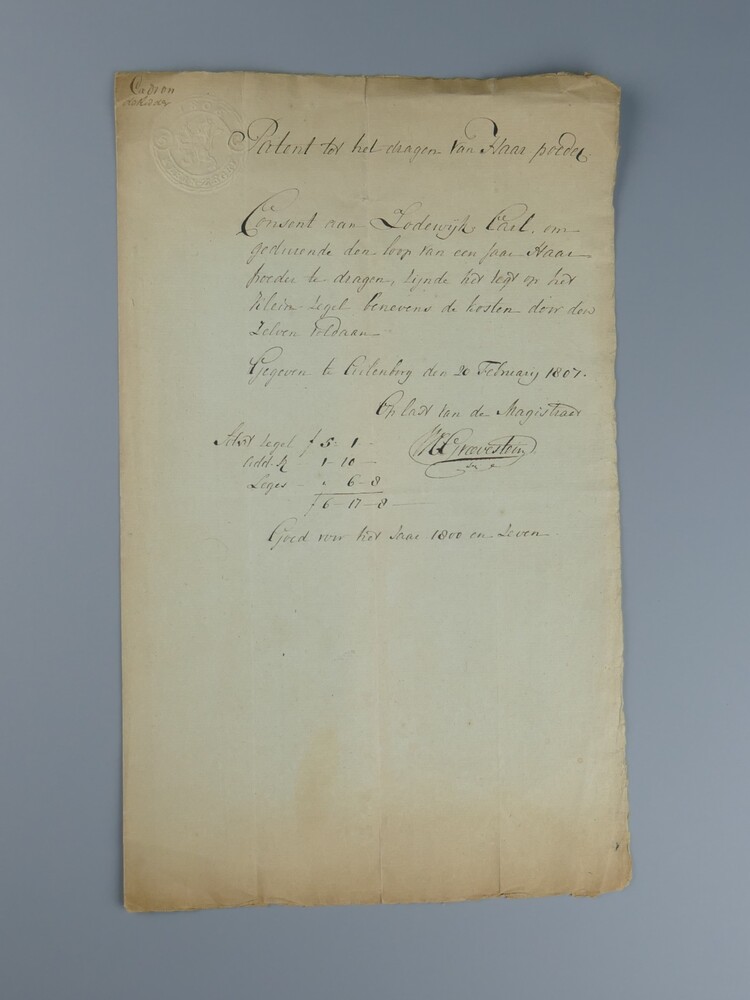 Patent tot het dragen van Haar poeder.
Consent aan Lodewijk Carl, om
gedurende den loop van een jaar Haar
poeder te dragen, zijnde het regt op het
klein zegel benevens de kosten door den
zelven voldaan
Gegeven te Culenborg den 20 February 1807.
Op last van de Magistraat
zegel f 5: 1 -
Add. 1 - 10 -
Grovestein
Leges - " 6 - 8
f 6 - 17 - 8
Goed voor het Jaar 1800 en zeven